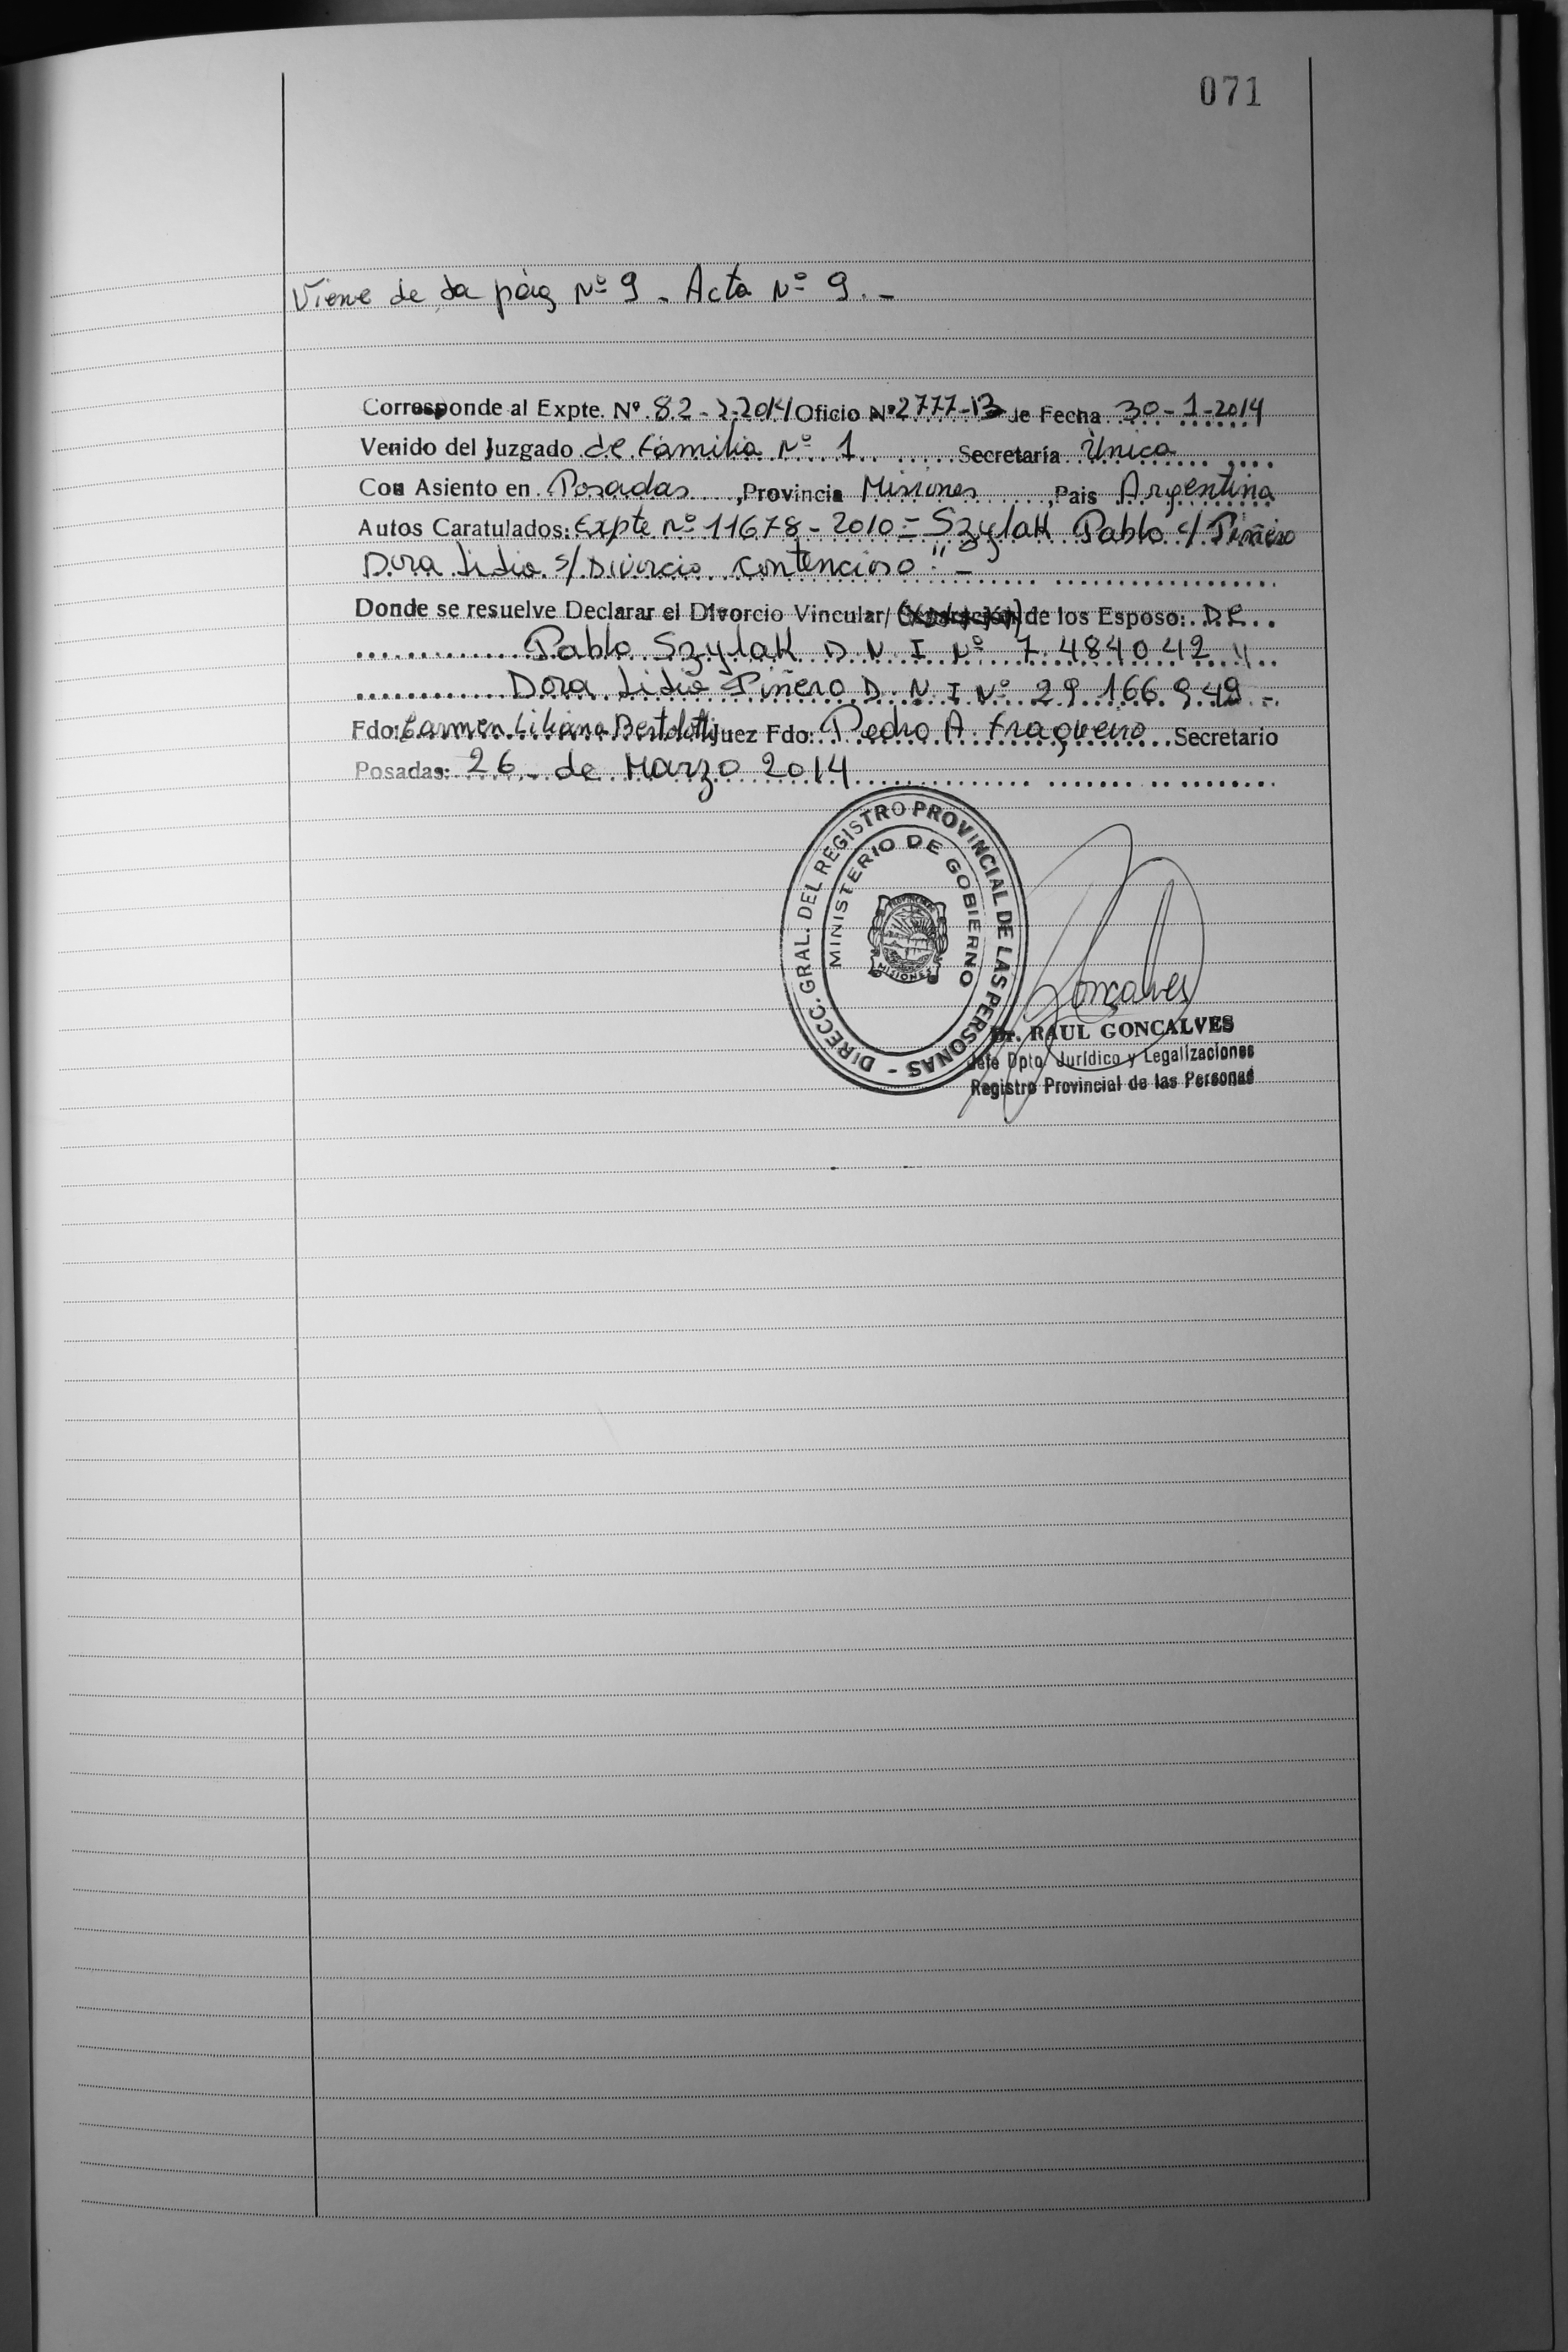 071
Viene de la pág Nº 9 - Acta Nº 9.-
Corresponde al Expte. Nº 82-2-2014 Oficio Nº 2777-13 de Fecha 30-1-2014
Venido del Juzgado de Familia Nº 1 Secretaría Única
Con Asiento en Posadas, Provincia Misiones, Pais Argentina
Autos Caratulados: Expte Nº 11678-2010= Szylak Pablo c/ Piñero
Dora Lidia s/ Divorcio Contencioso" -
Donde se resuelve Declarar el Divorcio Vincular/ de los Esposo: DE
Pablo Szylak D N I Nº 7.484042 y
Dora Lidia Piñero D. N I Nº 29.166.949 -
Fdo: Carmen Liliana Bertolotti Juez Fdo: Pedro A. Fragueiro Secretario
Posadas: 26 - de Marzo 2014
DIRECC. GRAL. DEL REGISTRO PROVINCIAL DE LAS PERSONAS -
MINISTERIO DE GOBIERNO
MISIONES
Goncalves
Dr. RAUL GONCALVES
Jefe Dpto. Jurídico y Legalizaciones
Registro Provincial de las Personas